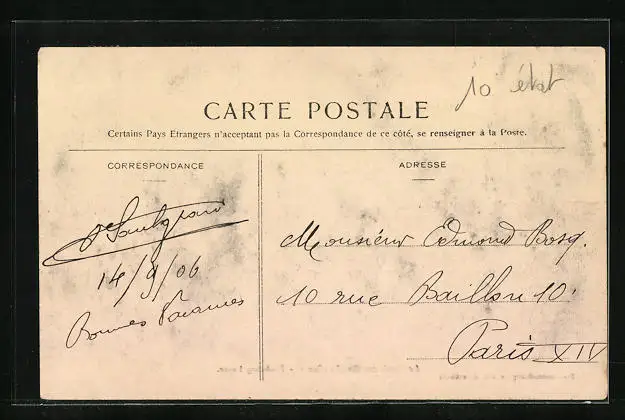 10 état
CARTE POSTALE
Certains Pays Etrangers n'acceptant pas la Correspondance de ce côté, se renseigner à la Poste.
CORRESPONDANCE
ADRESSE
14/9/06
Bonnes Vacances
Monsieur Edmond Bosq.
10 rue Baillou 10.
Paris XIV